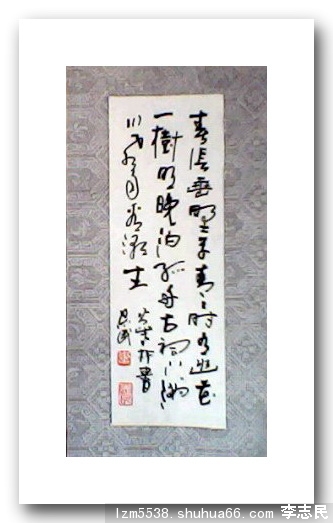 春陰垂野草青々時有幽花
一樹明晚泊孤舟古祠下滿
川風雨看潮生
lzm5538.shuhua66.com 李志民